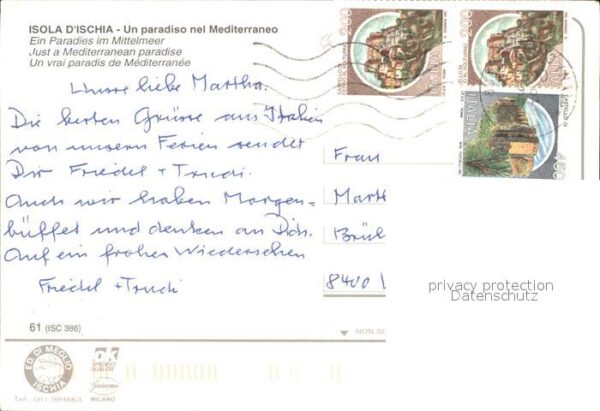 ISOLA D'ISCHIA - Un paradiso nel Mediterraneo
Ein Paradies im Mittelmeer
Just a Mediterranean paradise
Un vrai paradis de Méditerranée
Unsre liebe Martha.
Die besten Grüsse aus Italien
von unsern Ferien sendet
Dir Friedel + Trudi.
Auch wir haben Morgen-
büffet und denken an Dich.
Auf ein frohes Wiedersehen
Friedel + Trudi
200
200
ITALIA
450
Frau
Marth
Brüh
8400
privacy protection
Datenschutz
61 (ISC 386)
NON SC
ED. DI MEGLIO
ISCHIA
Tel. 081 984663
MILANO